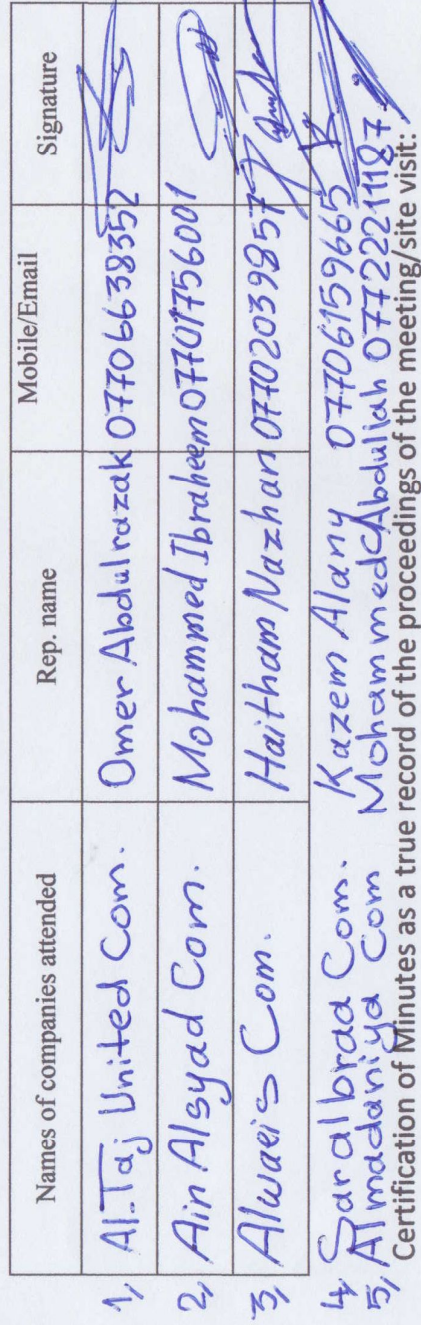 Names of companies attended Rep. name Mobile/Email Signature
1, Al-Taj United Com. Omer Abdulrazak 07706638352
2, Ain Alsyad Com. Mohammed Ibraheem 07701756001
3, Alwaeis Com. Haitham Nazhan 07702039857
4, Saralbrad Com. Kazem Alany 07706159665
5, Almadaniya Com Mohammed Abdullah 07722211187
Certification of Minutes as a true record of the proceedings of the meeting/site visit: